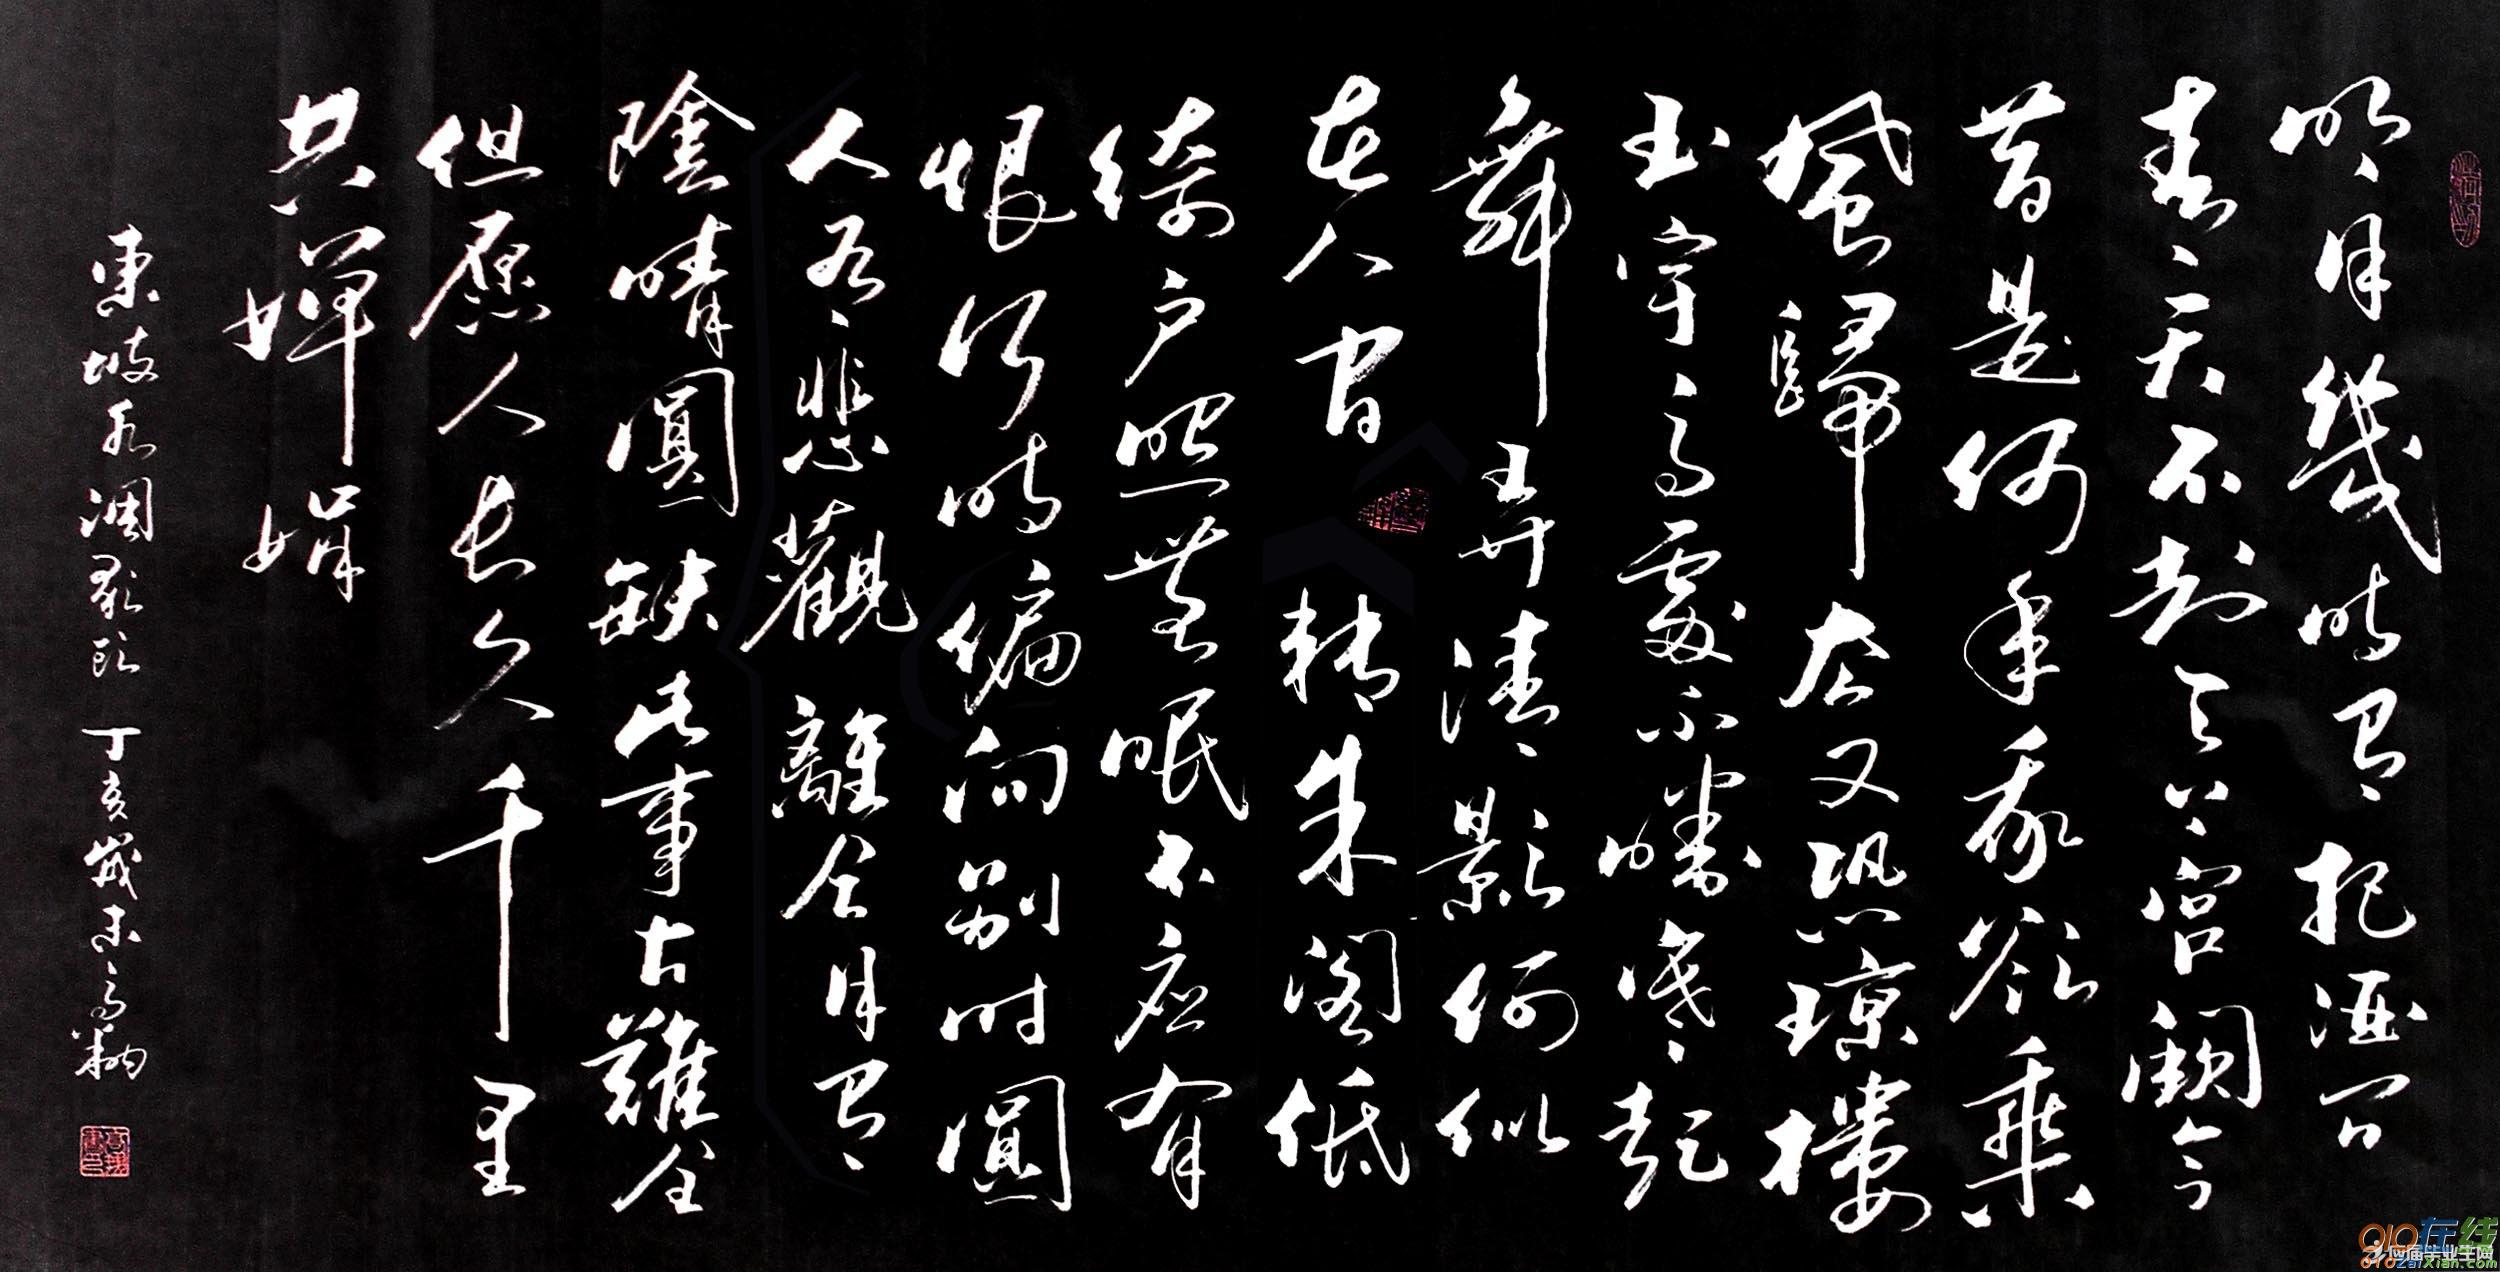 明月幾時有把酒問
青天不知天上宮闕今
昔是何年我欲乘
風歸去又恐琼樓
玉宇高處不勝寒起
舞弄清影何似
在人間轉朱閣低
綺戶照無眠不應有
恨何時偏向別時圓
人有悲觀離合月有
陰晴圓缺此事古難全
但愿人長久千里
共嬋娟
東坡水調歌頭 丁亥歲末高
010在线
应届毕业生网
010zaixian.com